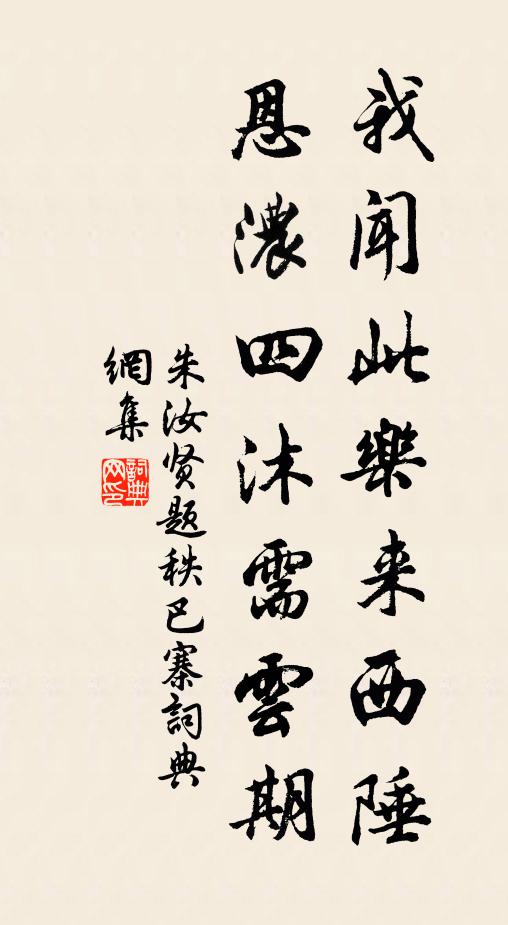 我聞此樂来西陲
恩濃四沐需雲期
朱汝贤题秩巴寨詞典
網集
詞典网印